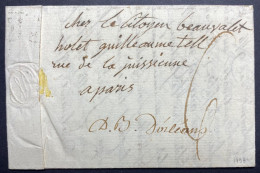 chez le citoyen beauvalet
hotel guilleaume tell
rue de la jussienne
a paris
D. B. Dorleans